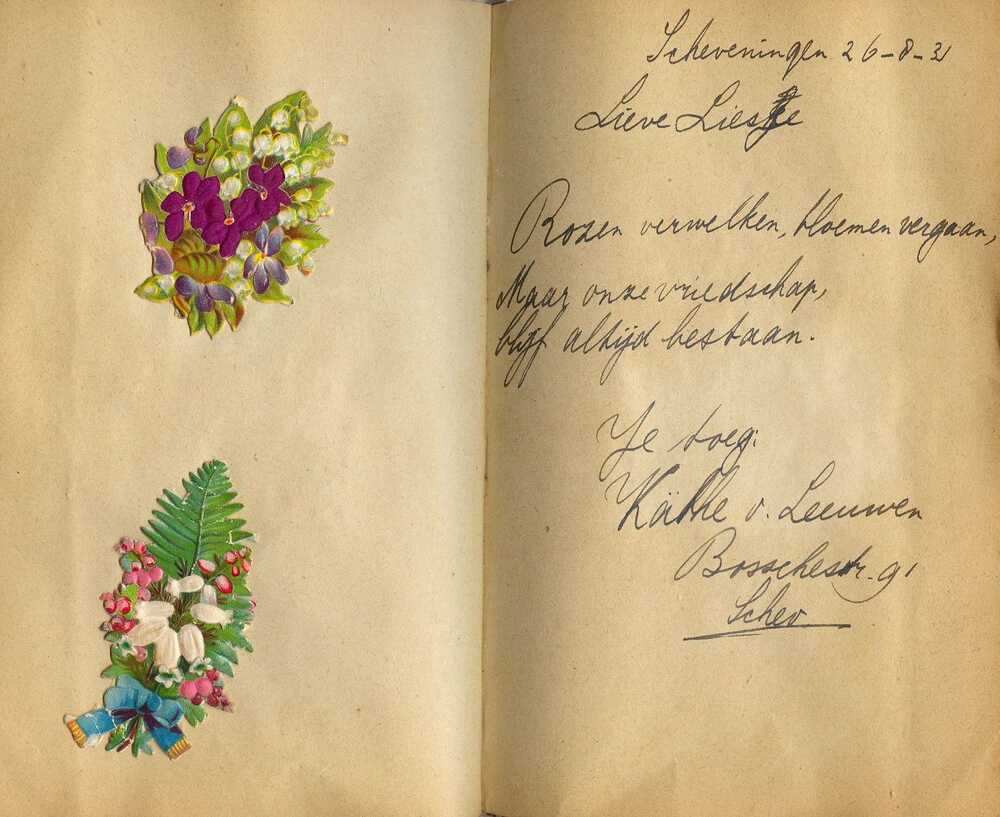 Scheveningen 26-8-31
Lieve Liesje
Rozen verwelken, bloemen vergaan,
Maar onze vriedschap,
blijf altijd bestaan.
Je toeg:
Käthe v. Leeuwen
Bosschestr. 91
Schev